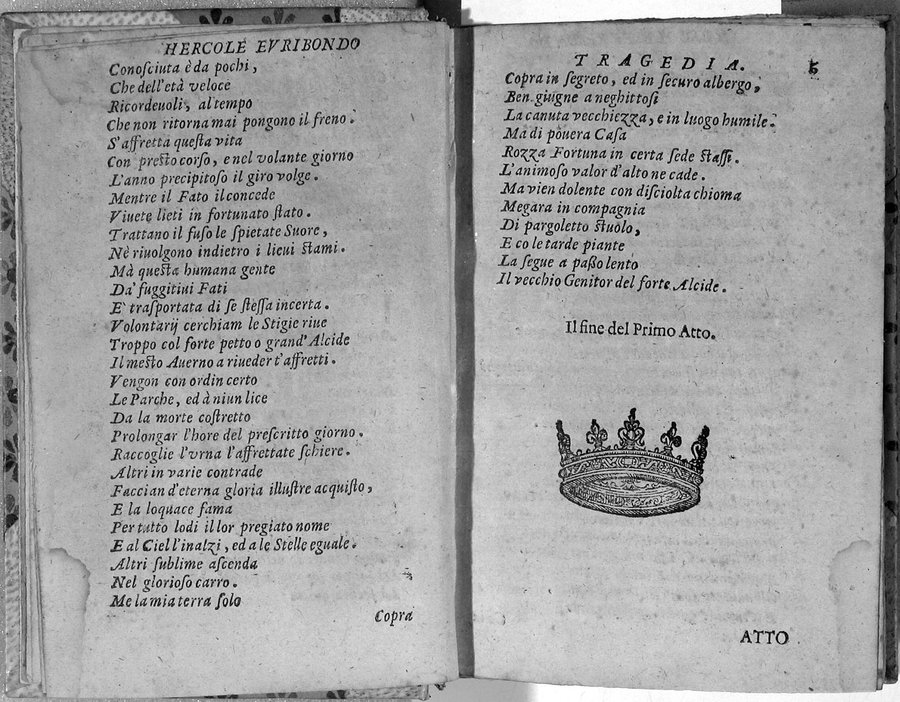 HERCOLE EVRIBONDO
Conoſciuta è da pochi,
Che dell'età veloce
Ricordeuoli, al tempo
Che non ritorna mai pongono il freno.
S'affretta queſta vita
Con preſto corſo, e nel volante giorno
L'anno precipitoſo il giro volge.
Mentre il Fato il concede
Viuete lieti in fortunato ſtato.
Trattano il fuſo le ſpietate Suore,
Nè riuolgono indietro i lieui ſtami.
Mà queſta humana gente
Da' fuggitiui Fati
E' traſportata di ſe ſteſſa incerta.
Volontarij cerchiam le Stigie riue
Troppo col forte petto o grand' Alcide
Il meſto Auerno a riueder t'affretti.
Vengon con ordin certo
Le Parche, ed à niun lice
Da la morte coſtretto
Prolongar l'hore del preſcritto giorno.
Raccoglie l'vrna l'affrettate ſchiere.
Altri in varie contrade
Faccian d'eterna gloria illuſtre acquiſto,
E la loquace fama
Per tutto lodi il lor pregiato nome
E al Ciel l'inalzi, ed a le Stelle eguale.
Altri ſublime aſcenda
Nel glorioſo carro.
Me la mia terra ſolo
Copra
TRAGEDIA. 5
Copra in ſegreto, ed in ſecuro albergo,
Ben giugne a neghittoſi
La canuta vecchiezza, e in luogo humile.
Mà di pouera Caſa
Rozza Fortuna in certa ſede ſtaſſi.
L'animoſo valor d'alto ne cade.
Ma vien dolente con diſciolta chioma
Megara in compagnia
Di pargoletto ſtuolo,
E co le tarde piante
La ſegue a paßo lento
Il vecchio Genitor del forte Alcide.
Il fine del Primo Atto.
ATTO